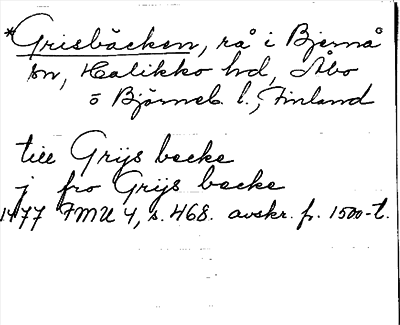 *Grisbäcken, rå i Bjernå
sn, Halikko hd, Åbo
o Björneb. l., Finland
till Grijs becke
j fro Grijs backe
1477 FMU 4, s. 468. avskr. fr. 1500-t.